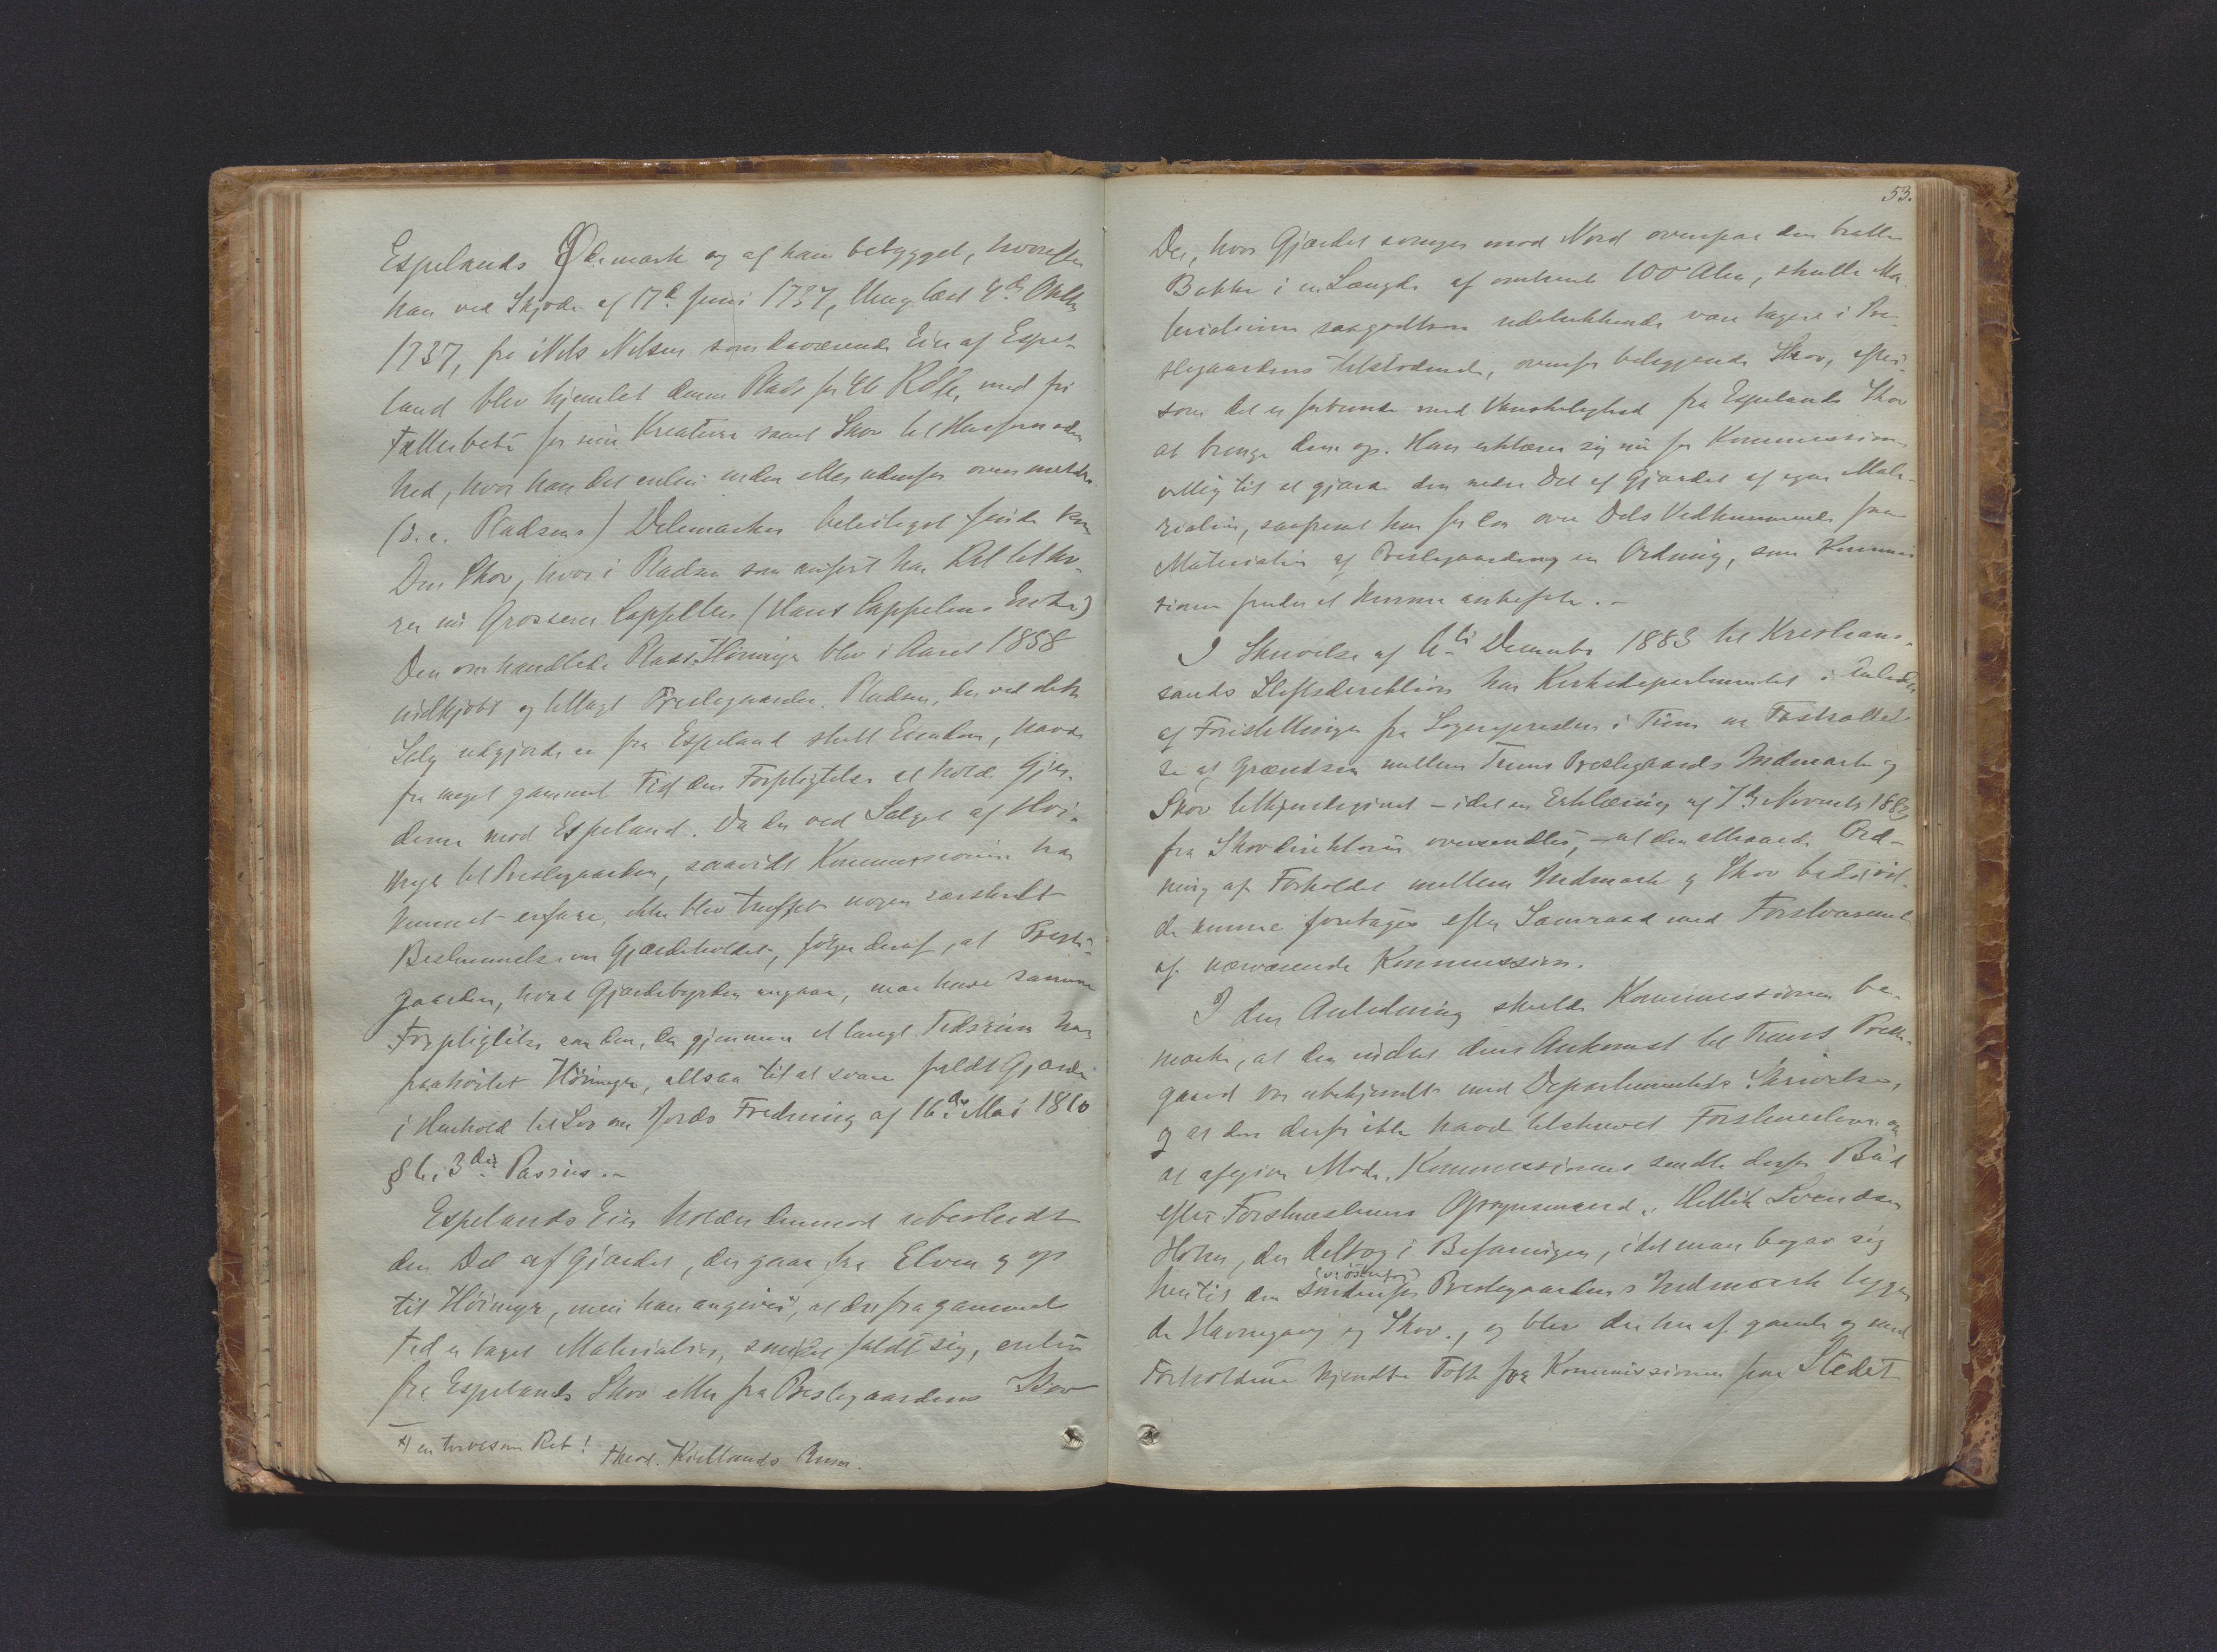 Espelands Ødemark og af ham bebygget, hvorefter
han ved Skjøde af 17de Juni 1737, thinglæst 4de Oktbr
1737, fra Niels Nilsen som daværende Eier af Espe-
land blev hjemlet denne Plads for 46 Rdlr, med fri
Fællesbeite for sine Kreature samt Skov til Husfornøden
hed, hvor han det enten inden eller udenfor ovenmeldte
(d. e. Pladsens) Delemærker beleiligst finde kan
Den Skov, hvori Pladsen som anført har Ret tilhø-
rer nu Grosserer Cappellen (Hans Cappelens Enke)
Den omhandlede Plads Høimyr blev i Aaret 1858
indkjøbt og tillagt Prestegaarden. Pladsen, der ved dette
Salg udgjorde en fra Espeland skilt Eiendom, havde
fra meget gammel Tid den Forpligtelse at holde Gjær-
derne mod Espeland. Da der ved Salget af Høi-
myr til Prestegaarden, saavidt Kommissionen har
kunnet erfare, ikke blev truffet nogen særskilt
Bestemmelse om Gjærdeholdet, følger deraf, at Preste-
gaarden, hvad Gjærdebyrden angaar, maa have samme
Forpligtelse som den, der gjennem et langt Tidsrum har
paahvilet Høimyr, altsaa til at svare fuldt Gjærde
i Henhold til Lov om Jords Fredning af 16de Mai 1860
§ 6, 3die Passus.-
Espelands Eier holder derimod ubeskudt
den Del af Gjærdet, der gaar fra Elven og op
til Høimyr, men han angiver, at der fra gammel
Tid er taget Materialier, som det faldt sig, enten
fra Espelands Skov eller fra Prestegaardens Skov
x) en tvivlsom Ret! Theod. Kiellands Anm.
53.
Der, hvor Gjærdet svinger mod Nord ovenpaa den bratte
Bakke i en Længde af omtrent 100 Alen, skulle Ma-
terialierne saagodtsom udelukkende være tagne i Pre-
stegaardens tilstødende, ovenfor beliggende Skov, efter-
som det er forbunde med Vanskelighed fra Espelands Skov
at bringe dem op. Han erklærer sig nu for Kommissionen
villig til at gjærde den nedre Del af Gjærdet af egne Mate-
rialier, saafremt han for den øvre Dels Vedkommende faar
Materialier af Prestegaarden en Ordning, som Kommis
sionen finder at kunne anbefale.-
I Skrivelse af 6te December 1883 til Kristian-
sands Stiftsdirektion har Kirkedepartementet i Anledn
af Forestillinger fra Sognepresten i Tinn om Fastsættel-
se af Grændsen mellem Tinns Prestegaards Indmark og
Skov tilkjendegivet - idet en Erklæring af 7de Novmbr 1883
fra Skovdirektøren oversendtes, - at den attraaede Ord-
ning af Forholdet mellem Indmark og Skov
de kunne foretages efter Samraad med Forstvæsenet
af nærværende Kommission.
I den Anledning skulde Kommissionen be-
mærke, at den indtil dens Ankomst til Tinns Preste-
gaard var ubekjendt med Departementets Skrivelse,
og at den derfor ikke havde tilskrevet Forstmesteren om
at afgive Møde. Kommissionen sendte derfor Bud
efter Forstmesterens Opsynsmand, Hellik Svendsen
, der deltog i Befaringen, idet man begav sig
hen til den søndenfor (østenfor) Prestegaardens Indmark liggen
de Havnegang og Skov., og blev der her af gamle og med
Forholdene kjendte Folk for Kommissionen paa Stedet